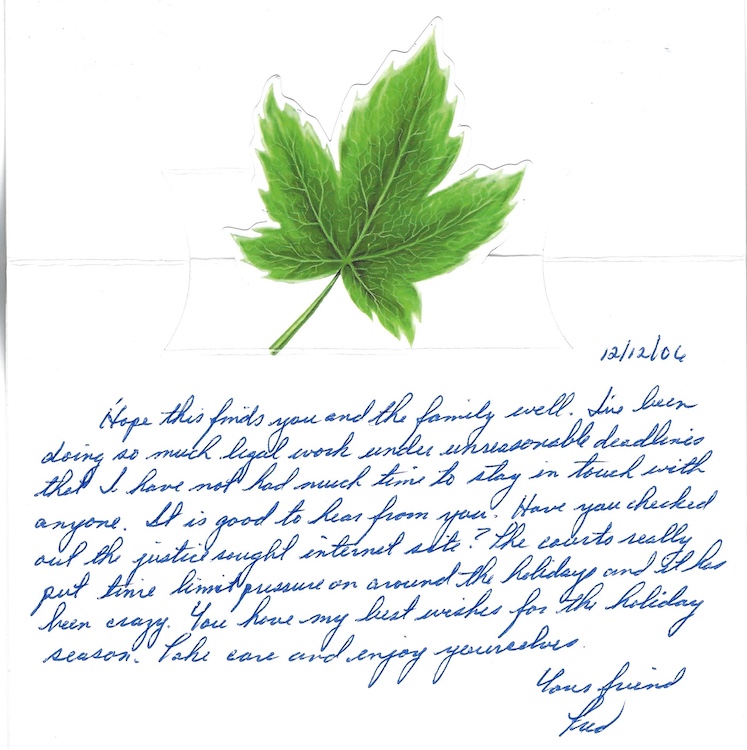 12/12/06
Hope this finds you and the family well. I've been
doing so much legal work under unreasonable deadlines
that I have not had much time to stay in touch with
anyone. It is good to hear from you. Have you checked
out the justice sought internet site? The courts really
put time limit pressure on around the holidays and it has
been crazy. You have my best wishes for the holiday
season. Take care and enjoy yourselves.
Yours friend
Fred